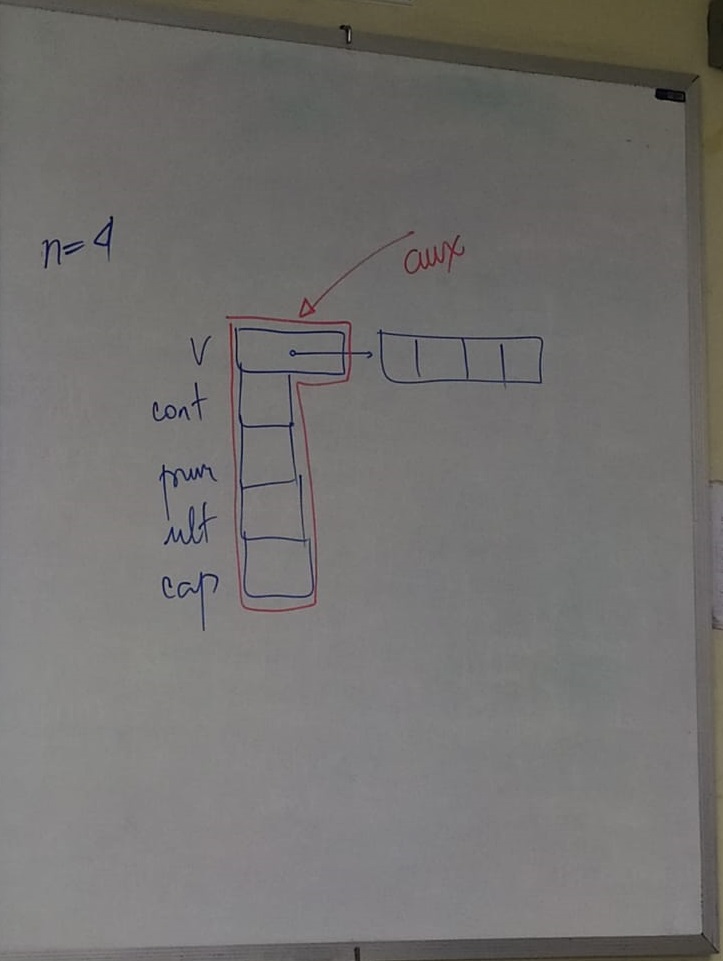 n=4
aux
V
cont
prim
ult
cap